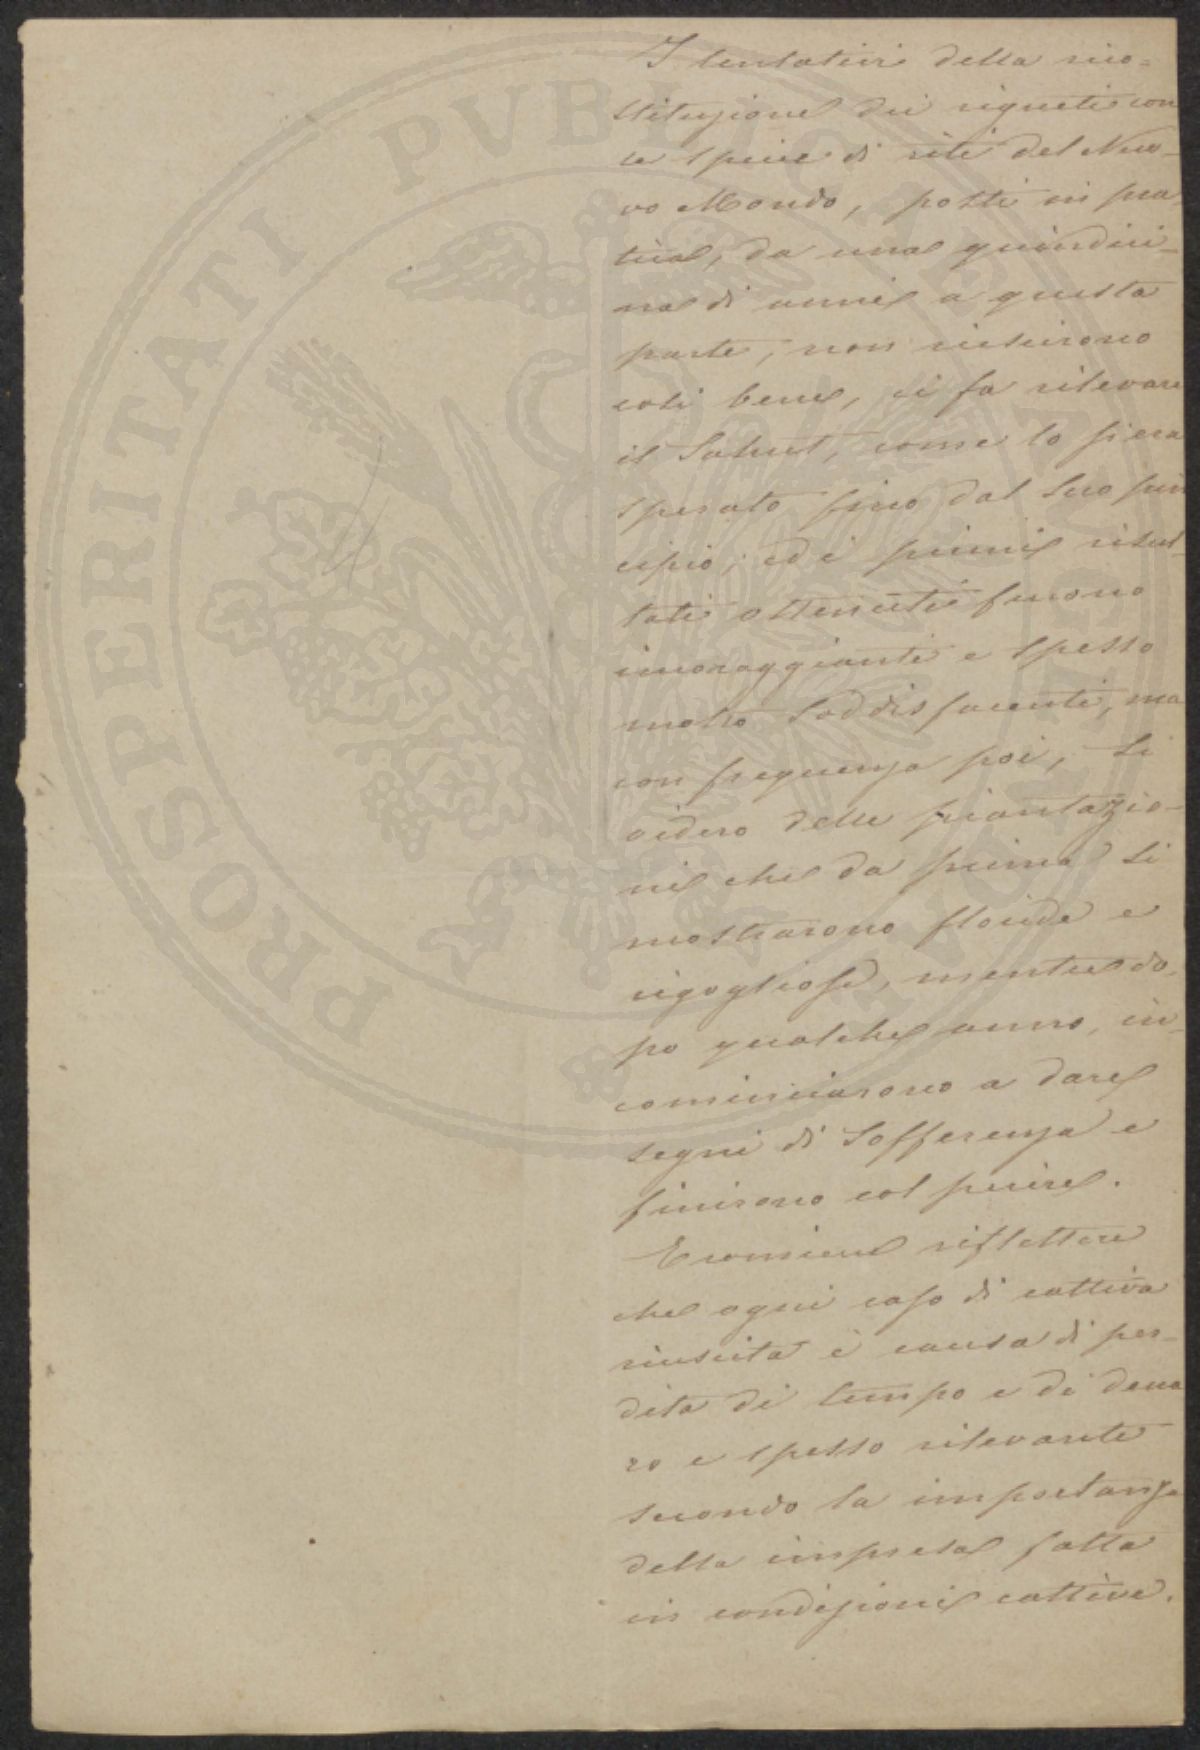 I tentativi della rico-
stituzione dei vigneti con
le specie di viti del Nuo-
vo Mondo, posti in pra-
tica, da una quindici-
na di anni a questa
parte, non riescirono
così bene, ci fa rilevare
il Sahut, come lo si era
sperato fino dal suo prin
cipio; ed i primi risul-
tati ottenuti furono
incoraggianti e spesso
molto soddisfacenti, ma
con frequenza poi, si
videro delle piantazio-
ni che da prima si
mostrarono floride e
rigogliose, mentre do-
po qualche anno, in-
cominciarono a dare
segni di sofferenza e
finirono col perire.
E conviene riflettere
che ogni caso di cattiva
riuscita è causa di per-
dita di tempo e di dena
ro e spesso rilevante
secondo la importanza
della impresa fatta
in condizioni cattive.
PROSPERITATI PVBLICAE